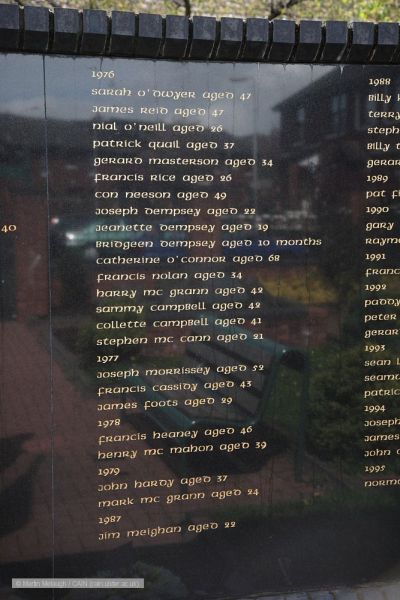 40
1976
Sarah O'Dwyer aged 47
James Reid aged 47
Nial O'Neill aged 26
Patrick Quail aged 37
Gerard Masterson aged 34
Francis Rice aged 26
Con Neeson aged 49
Joseph Dempsey aged 22
Jeanette Dempsey aged 19
Bridgeen Dempsey aged 10 months
Catherine O'Connor aged 68
Francis Nolan aged 34
Harry Mc Grann aged 42
Sammy Campbell aged 42
Collette Campbell aged 41
Stephen Mc Cann aged 21
1977
Joseph Morrissey aged 52
Francis Cassidy aged 43
James Foots aged 29
1978
Francis Heaney aged 46
Henry Mc Mahon aged 39
1979
John Hardy aged 37
Mark Mc Grann aged 24
1987
Jim Meighan aged 22
1988
Billy
Terry
Steph
Billy
Gerar
1989
Pat
1990
Gary
Raymo
1991
Franc
1992
Paddy
Peter
Gerar
1993
Sean
Seamu
Patric
1994
Joseph
James
John
1995
Norma
© Martin Melaugh / CAIN (cain.ulster.ac.uk)